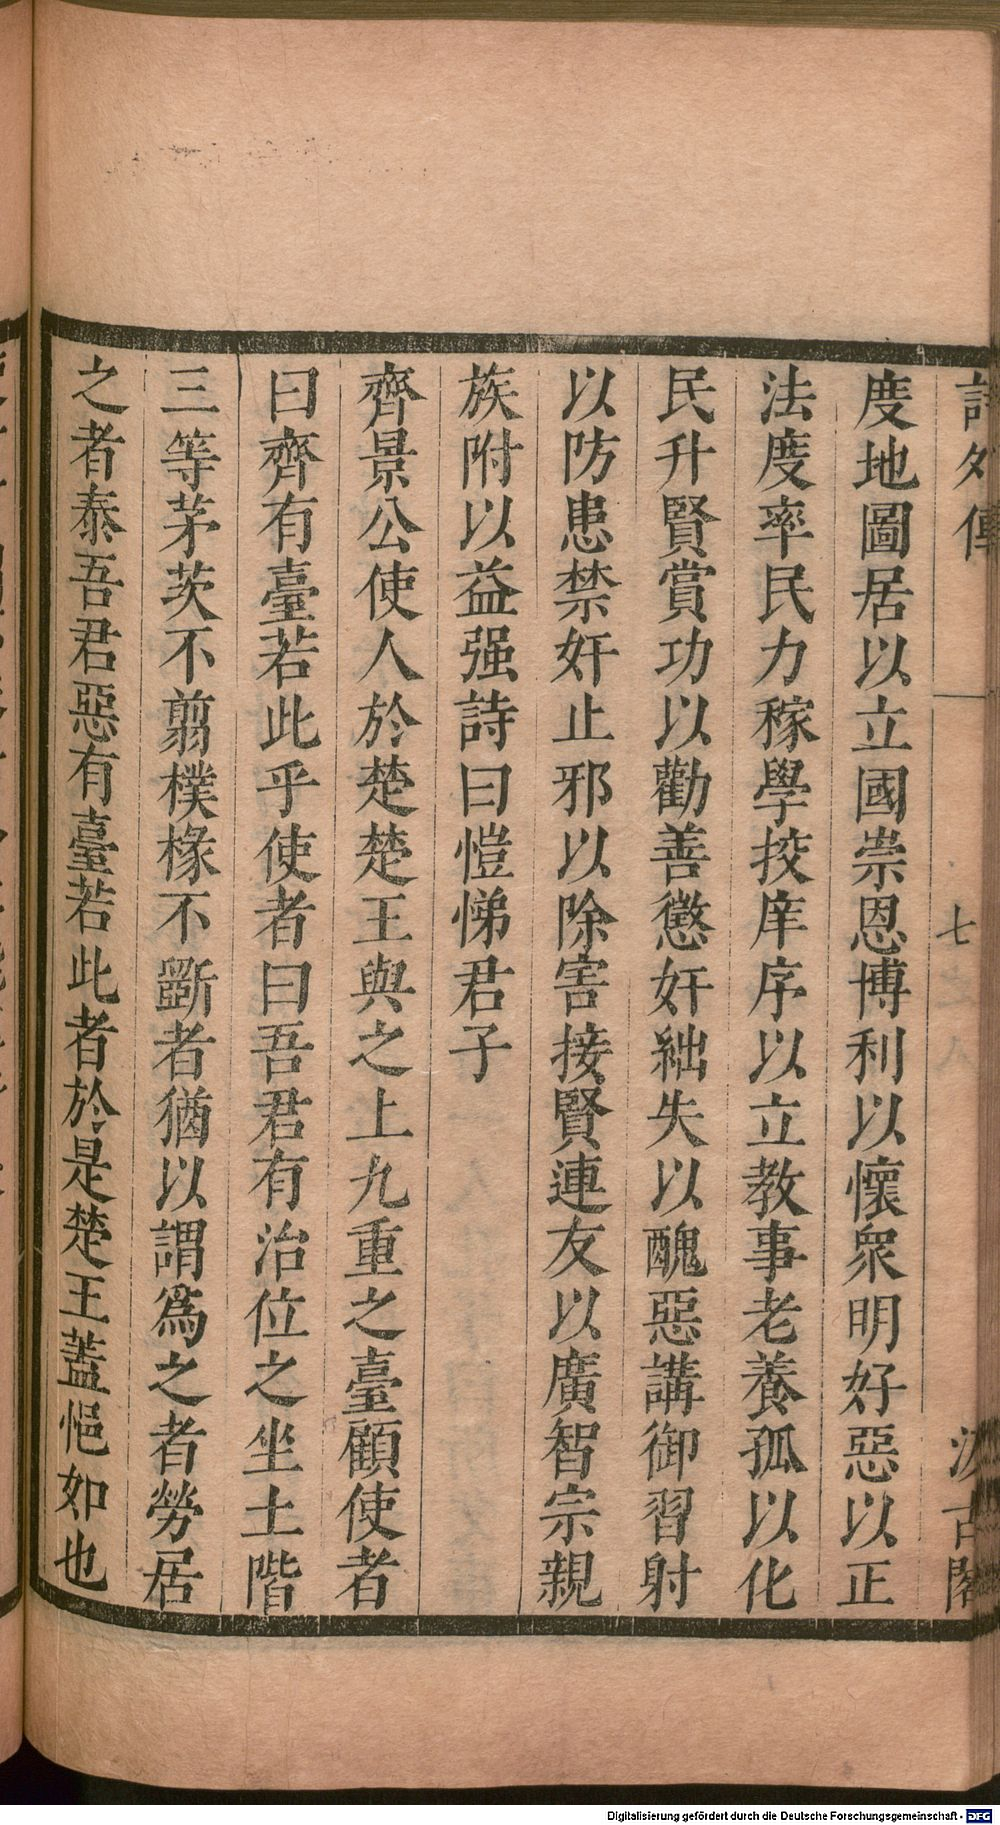 詩外傳
七
汲古閣
度地圖居以立國崇恩博利以懷衆明好惡以正
法度率民力稼學挍庠序以立教事老養孤以化
民升賢賞功以勸善懲奸絀失以醜惡講御習射
以防患禁奸止邪以除害接賢連友以廣智宗親
族附以益强詩曰愷悌君子
齊景公使人於楚楚王與之上九重之臺顧使者
曰齊有臺若此乎使者曰吾君有治位之坐土階
三等茅茨不翦樸椽不斲者猶以謂爲之者勞居
之者泰吾君惡有臺若此者於是楚王蓋悒如也
Digitalisierung gefördert durch die Deutsche Forschungsgemeinschaft - DFG